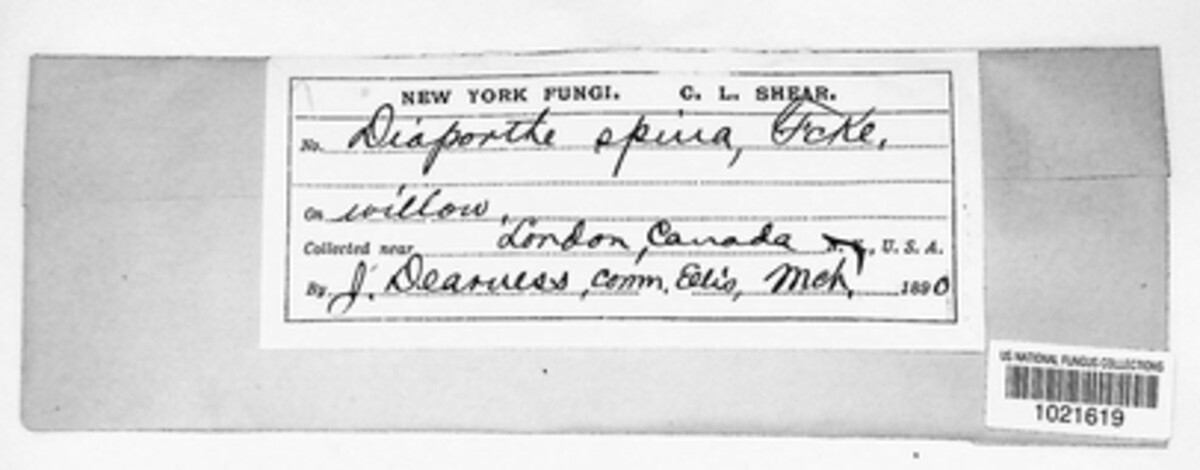 NEW YORK FUNGI. C. L. SHEAR.
No. Diaporthe spina, Fcke.
On willow,
Collected near London, Canada N. Y., U. S. A.
By J. Dearness, comm. Ellis, Mch, 1890
US NATIONAL FUNGUS COLLECTIONS
1021619